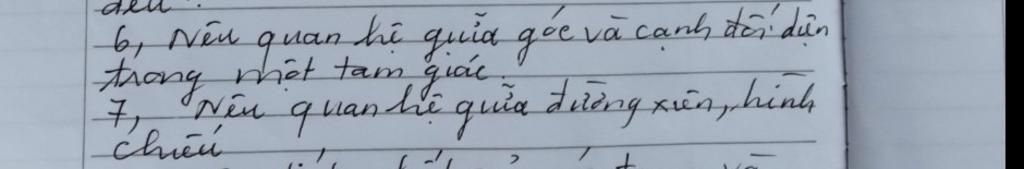 đều.
6, Nêu quan hệ giữa góc và cạnh đối diện
trong một tam giác.
7, Nêu quan hệ giữa đường xiên, hình
chiếu